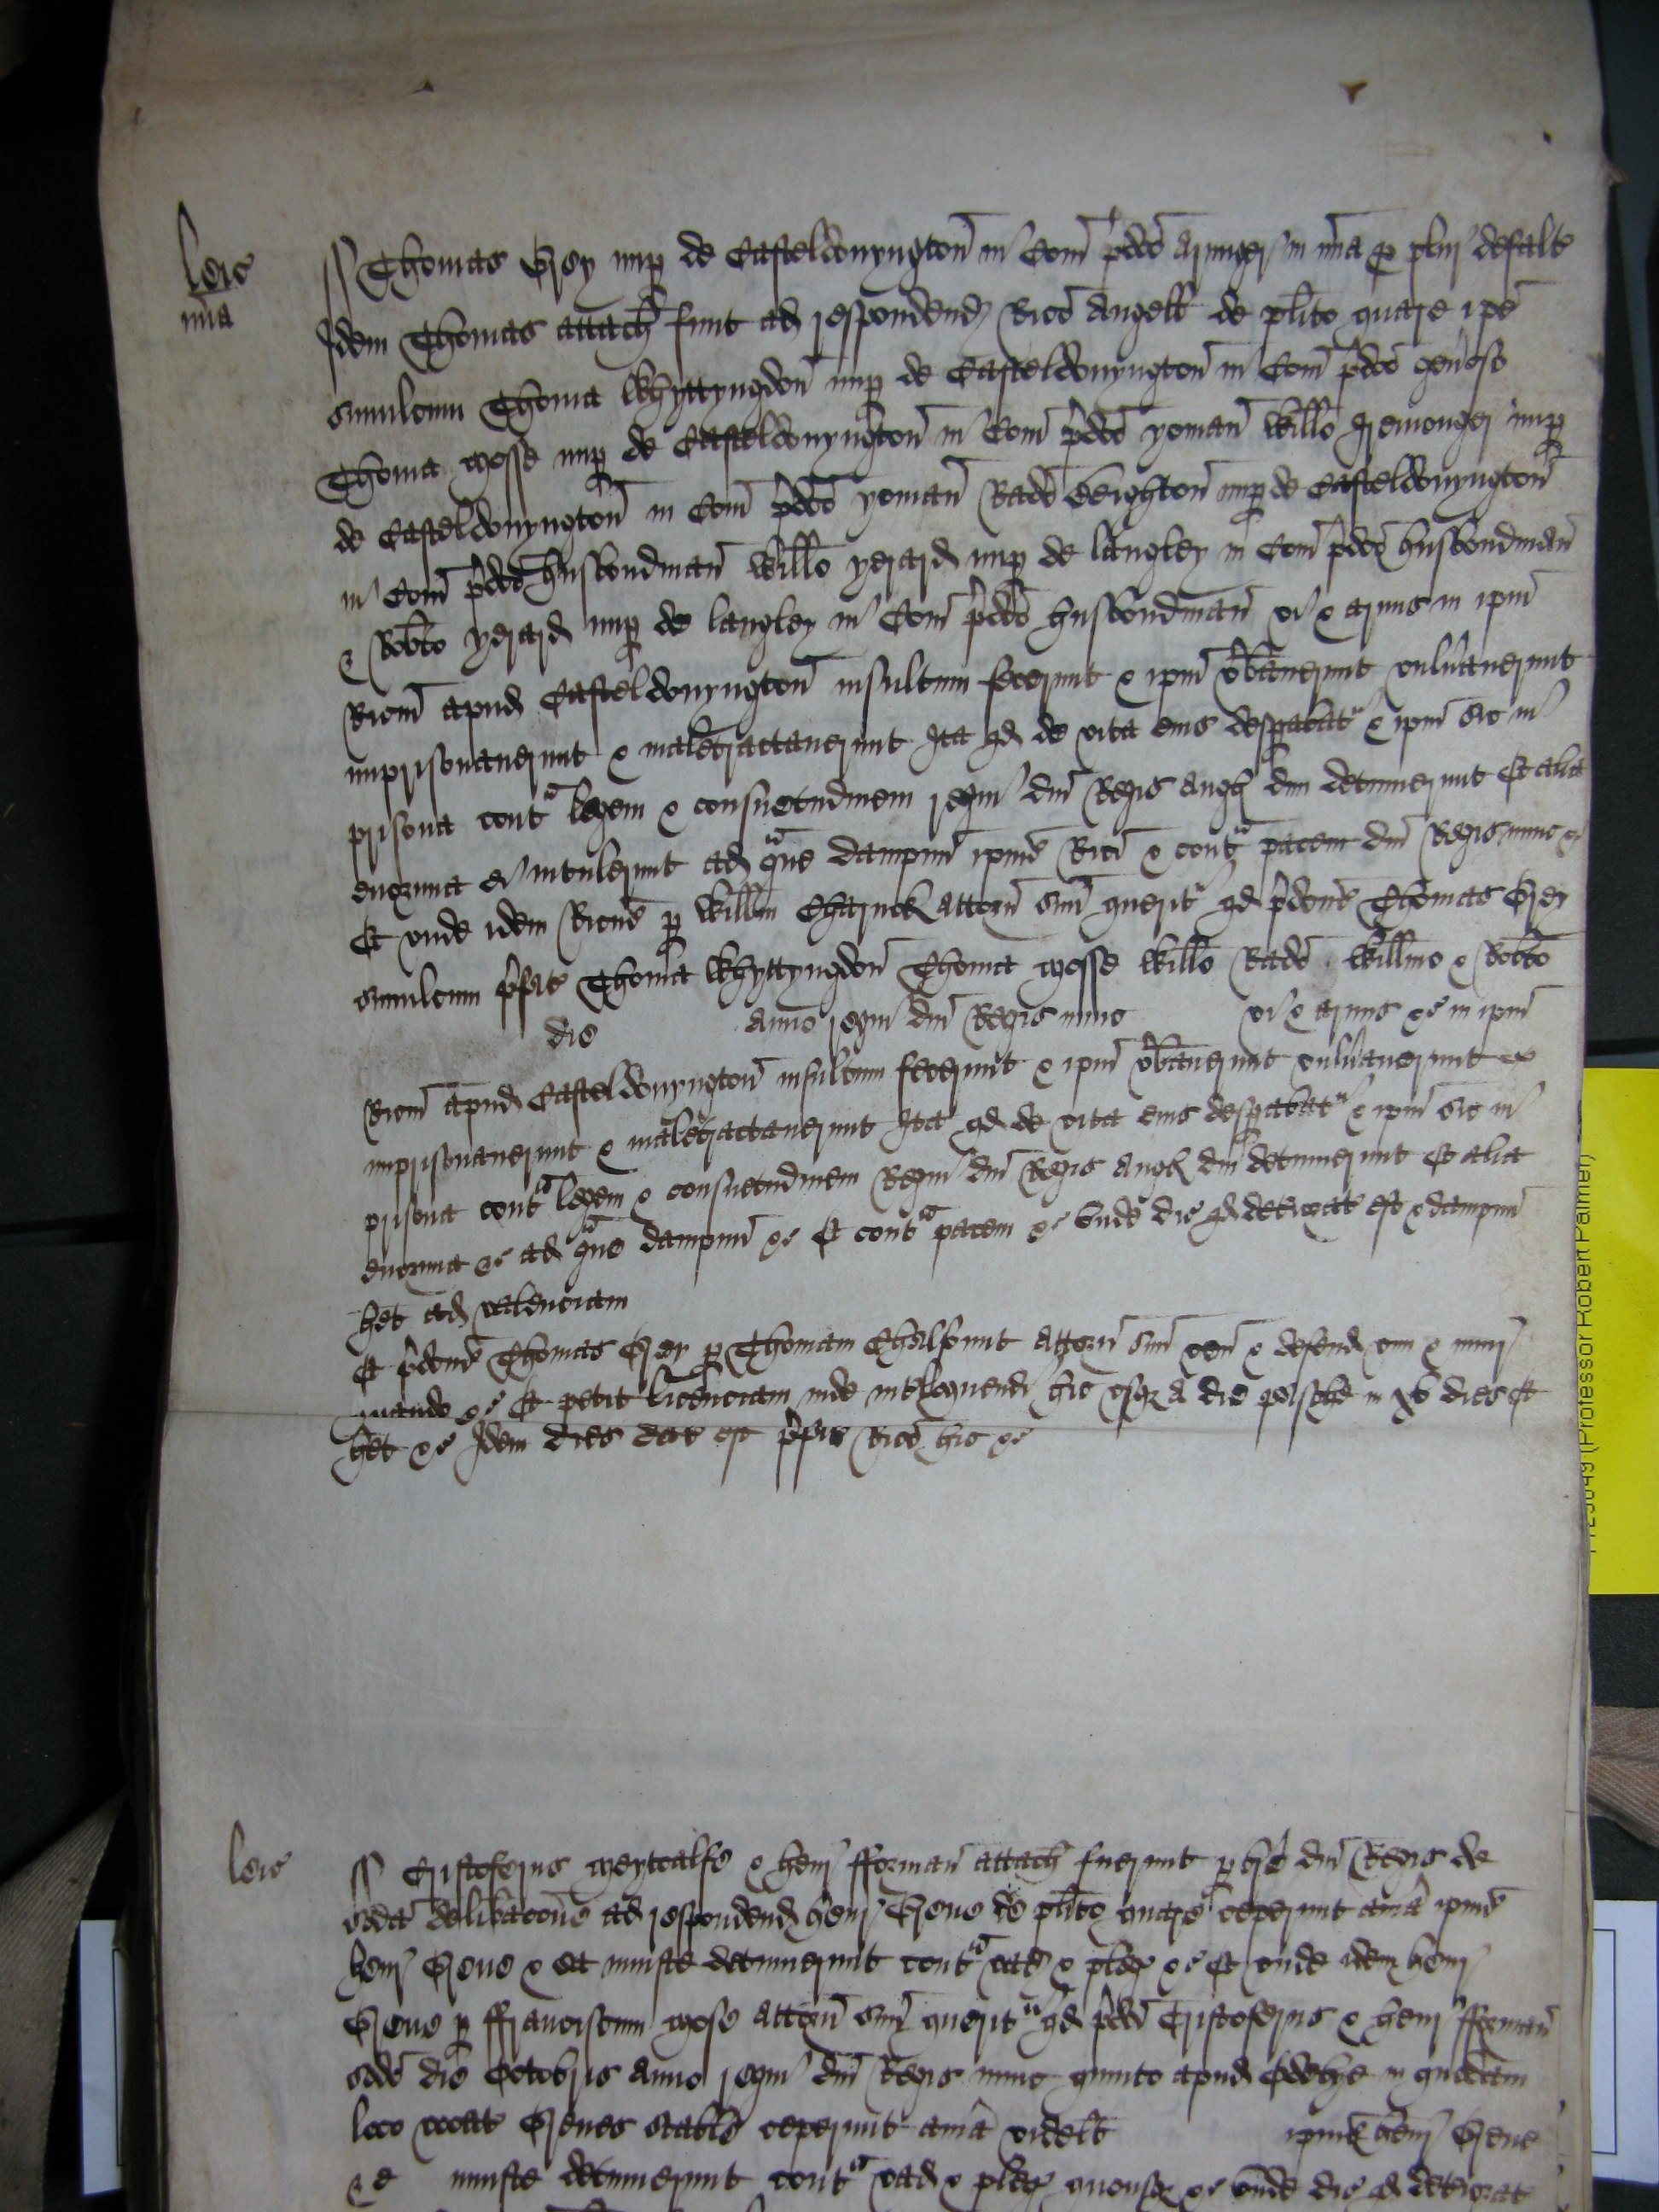 Leic
mia
Thomas Grey nup de Casteldonyngton in Com pdco Armiger in mia p plur defalt
Idem Thomas attach fuit ad respondend Rico Angell de plito quare ipe
simulcum Thoma Whyttyngdon nup de Casteldonyngton in Com pdco genoso
Thoma Mosse nup de Casteldonyngton in Com pdco yoman Willo Iremonger nup
de Casteldonyngton in Com pdco yoman Rado Deighton nup de Casteldonyngton
in Com pdco husbondman Willo yerard nup de langley in Com pdco husbondman
& Robto yerard nup de langley in Com pdco husbondman vi & armis in ipm
Ricm apud Casteldonyngton insultum fecerunt & ipm vbauerunt vulnauerunt
imprisonauerunt & maletractauerunt Ita qd de vita eius despabat & ipm sic in
prisona cont legem & consuetudinem regni dni Regis Angl diu detinuerunt Et alia
enormia ei intulerunt ad que dampnu ipius Rici & cont pacem dni Regis nunc &c
Et unde idem Ricus p Willm Charnok attorn suu querit qd pdcus Thomas Grey
simulcum pfat Thoma Whyttyngdon Thoma Mosse Willo Rado Willmo & Robto
die anno regni dni Regis nunc vi & armis &c in ipm
Ricm apud Casteldonyngton insultum fecerunt & ipm vbauerunt vulnauerunt &
imprisonauerunt & maletractauerunt Ita qd de vita eius despabat & ipm sic in
prisona cont legem & consuetudinem Regni dni Regis Angl diu detinuerunt Et alia
enormia &c ad que dampnu &c Et cont pacem &c unde dic qd deteriorat est & dampnu
het ad valenciam
Et pdcus Thomas Grey p Thomam Chalfunt Attorn suu ven & defend vim & iniur
quando &c Et petit licenciam inde interloquendi hic usq a die pasche in xv dies Et
het &c Idem dies dat est pfat Rico hic &c
Leic
Cristoferus Meytcalfe & Henr fforman attach fuerunt p bre dni Regis de
scda delibacone ad respondend Henr Grene de plito quare ceperunt aueria ipius
Henr Grene & ea iniuste detinuerunt cont vad & pleg &c Et unde idem Henr
Grene p ffranciscum Mose attorn suu querit qd pdci Cristoferus & Henr fforman
scdo die Octobris anno regni dni Regis nunc quinto apud in quodam
loco vocat Grenes Stable ceperunt aueria videlt ipius Henr Grene
& ea iniuste detinuerunt cont vad & pleg quousq &c unde dic qd deteriorat